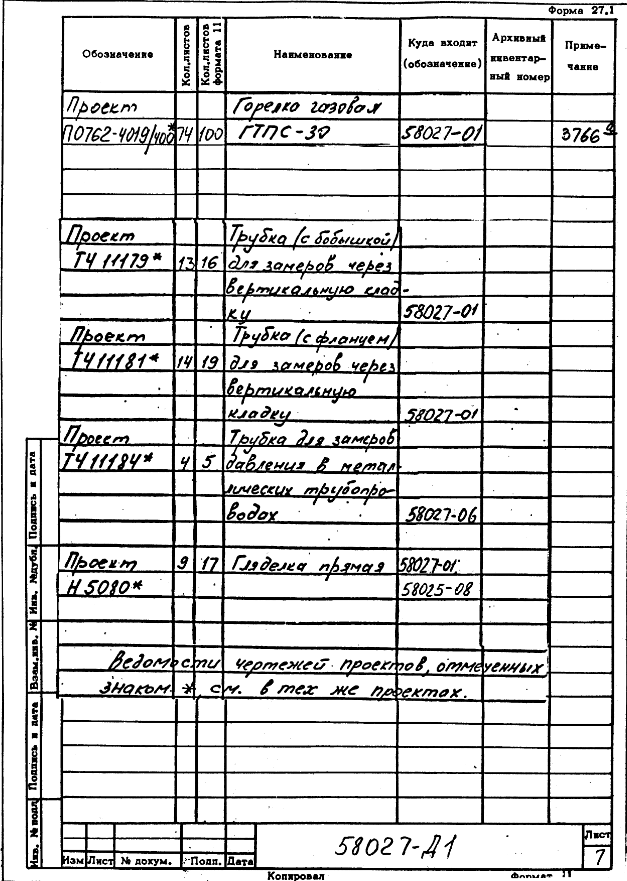 Форма 27.1
Обозначение Кол.листов Кол.листов формата 11 Наименование Куда входит (обозначение) Архивный инвентарный номер Примечание
Проект Горелка газовая
ПО762-4019/400* 74 100 ГТПС-30 58027-01 3766
Проект Трубка (с бобышкой)
ТЧ 11179* 13 16 для замеров через
вертикальную клад-
ку 58027-01
Проект Трубка (с фланцем)
ТЧ 11181* 14 19 для замеров через
вертикальную
кладку 58027-01
Проект Трубка для замеров
ТЧ 11184* 4 5 давления в метал-
лических трубопро-
водах 58027-06
Проект 9 17 Гляделка прямая 58027-01
Н 5080* 58025-08
Ведомости чертежей проектов, отмеченных
знаком *, см. в тех же проектах.
Инв. № подл Подпись и дата Взам.инв. № Инв. №дубл. Подпись и дата
Изм Лист № докум. Подп. Дата
58027-Д1
Лист
7
Копировал Формат 11